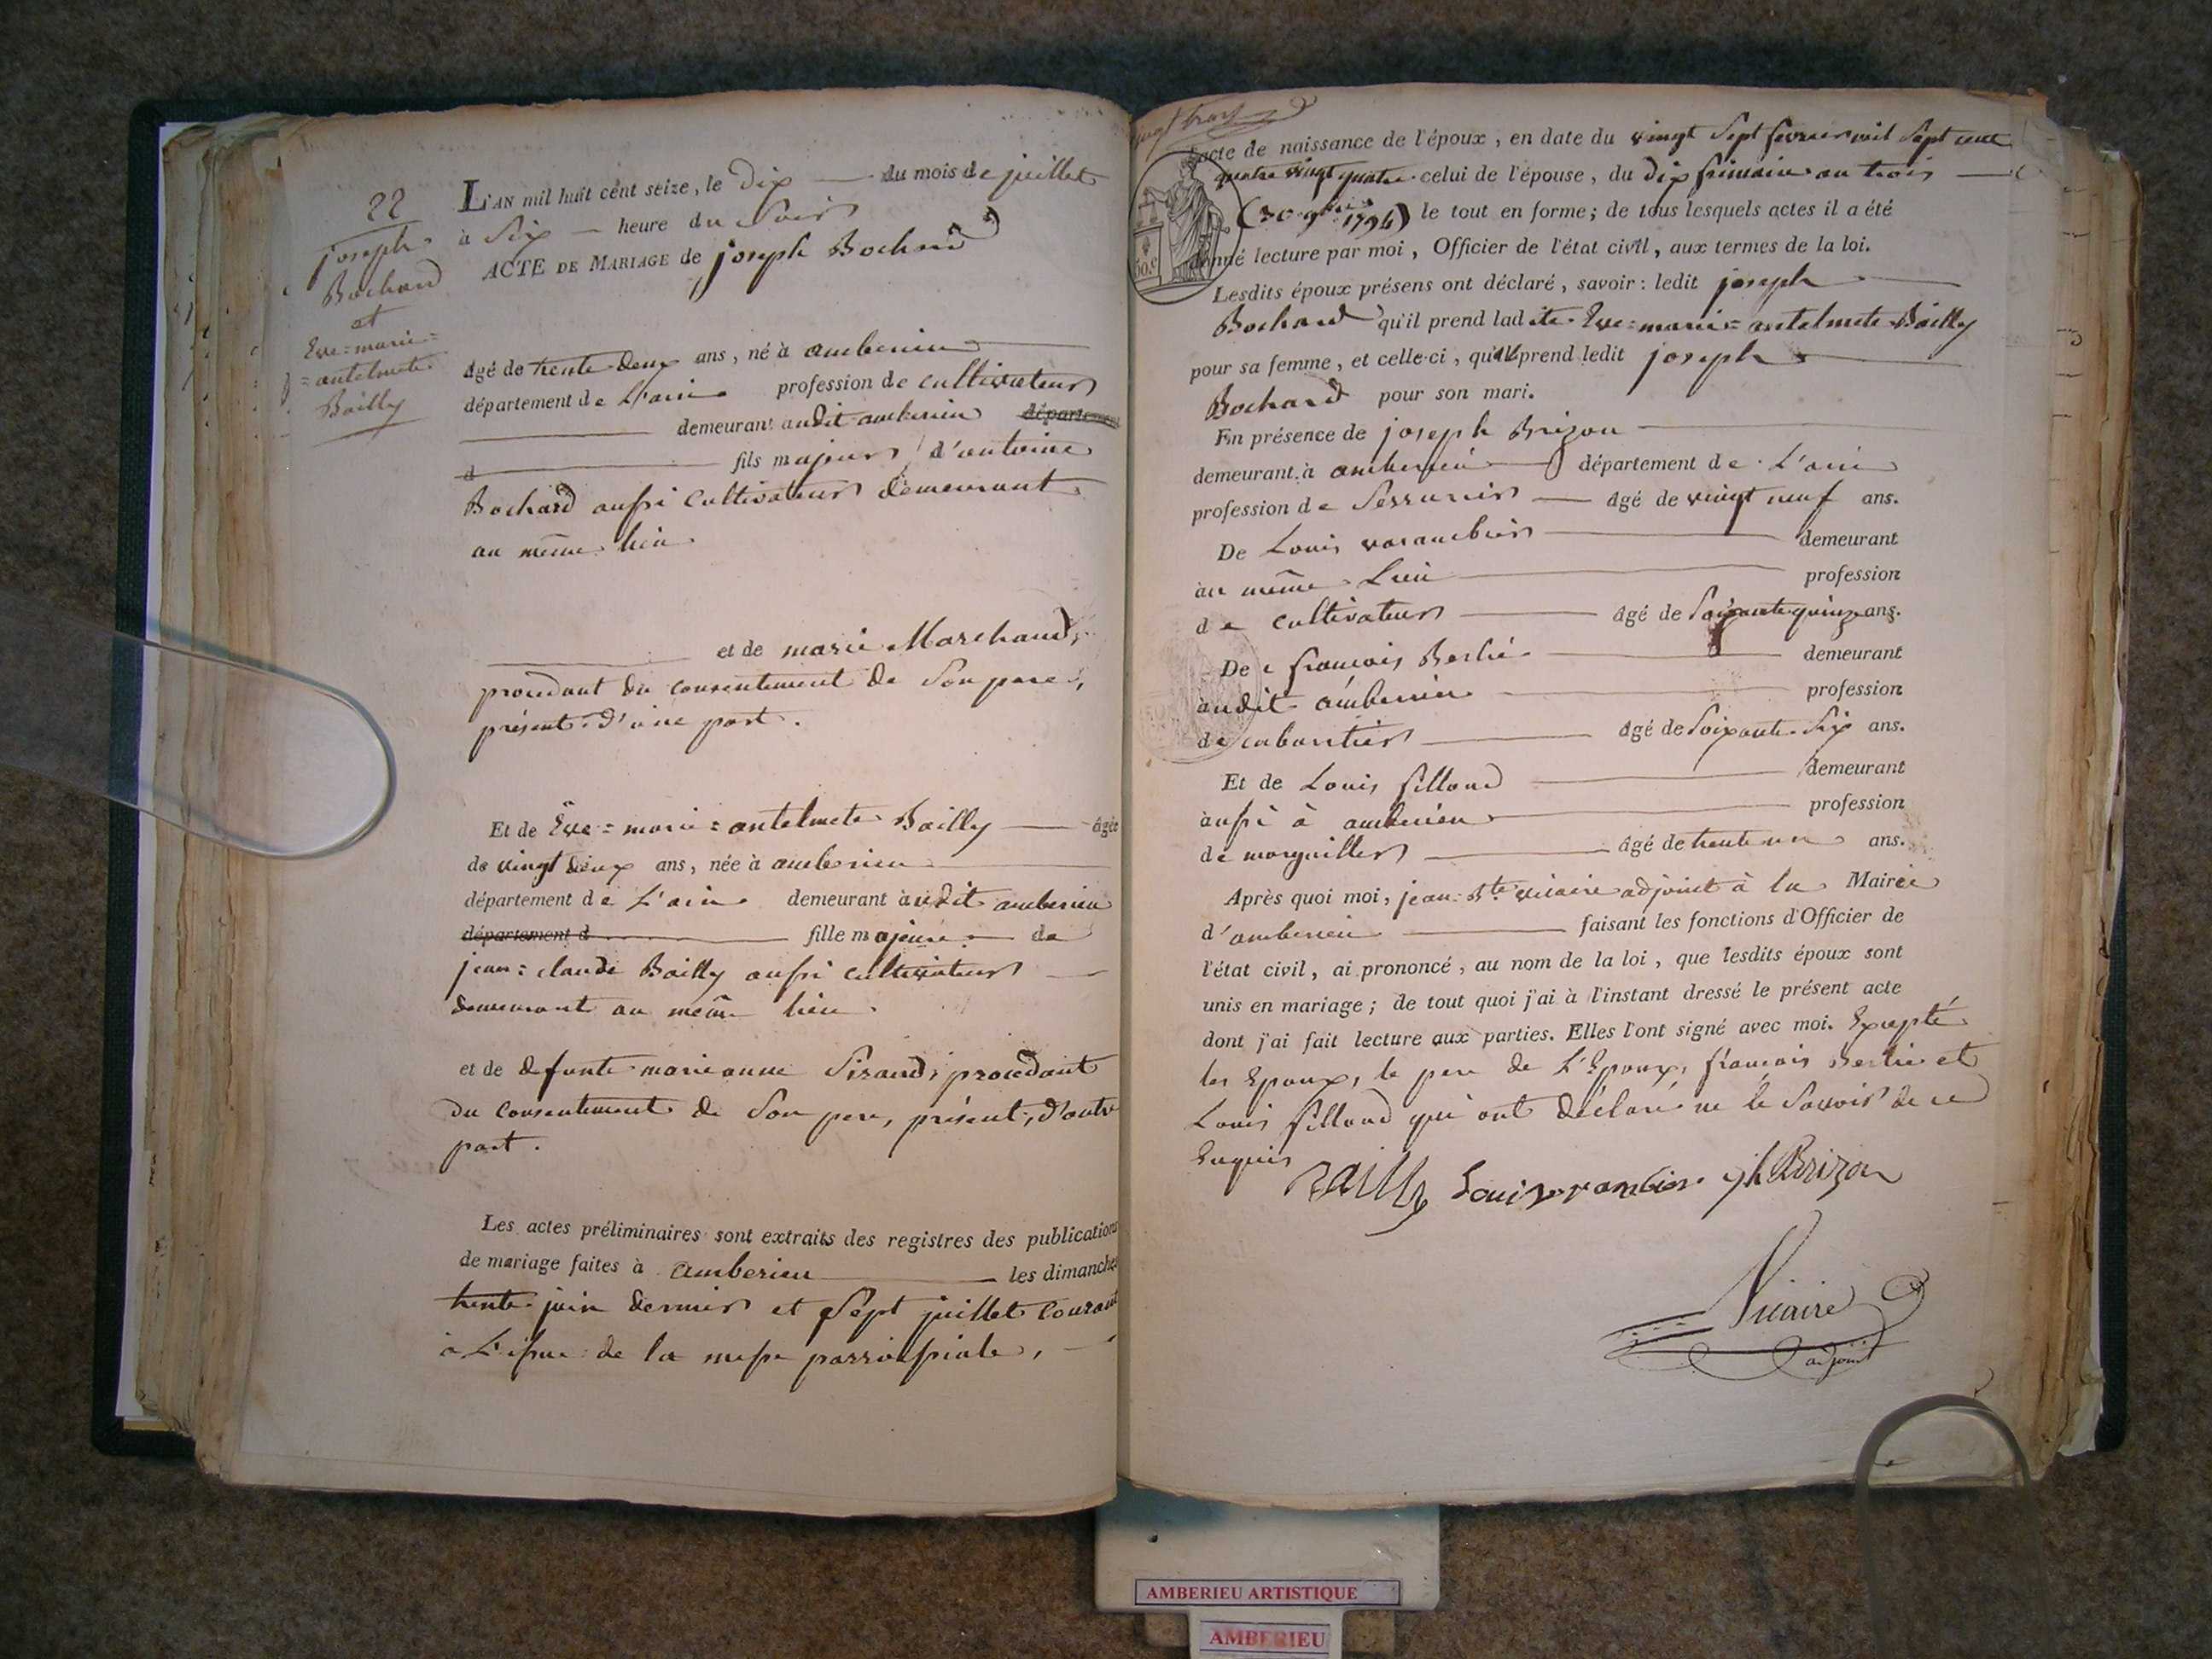 22
joseph
Bochard
et
Eve=marie=
=antelmete
Bailly
L'AN mil huit cent seize, le Dix du mois de juillet
à Six heure du Soir
ACTE DE MARIAGE de joseph Bochard
âgé de trente deux ans, né à amberieu
département de L'ain profession de cultivateur
demeurant audit amberieu département
d fils majeur d'antoine
Bochard aussi cultivateur demeurant
au même lieu
et de marie Marchand,
procedant du consentement de Son pere,
présent. d'une part.
Et de Eve=marie=antelmete Bailly âgée
de vingt deux ans, née à amberieu
département de L'ain demeurant audit amberieu
département d fille majeure de
jean=claude Bailly aussi cultivateur
demeurant au même lieu.
et de defunte marieanne Sirand, procedant
du consentement de Son pere, présent, d'autre
part.
Les actes préliminaires sont extraits des registres des publications
de mariage faites à amberieu les dimanches
trente juin dernier et Sept juillet courant
à L'issue de la messe parroissiale,
vingt trois
l'acte de naissance de l'époux, en date du vingt Sept fevrier mil Sept cent
quatre vingt quatre celui de l'épouse, du dix frimaire an trois
(30 9bre 1794) le tout en forme; de tous lesquels actes il a été
donné lecture par moi, Officier de l'état civil, aux termes de la loi.
Lesdits époux présens ont déclaré, savoir: ledit joseph
Bochard qu'il prend ladite Eve=marie=antelmete Bailly
pour sa femme, et celle-ci, qu'ell prend ledit joseph
Bochard pour son mari.
En présence de joseph Brizon
demeurant à amberieu département de L'ain
profession de Serrurier âgé de vingt neuf ans.
De Louis varambier demeurant
au même Lieu profession
de cultivateur âgé de Soixante quinze ans.
De françois Berlié demeurant
audit amberieu profession
de cabaretier âgé de Soixante Six ans.
Et de Louis fillaud demeurant
aussi à amberieu profession
de marguillier âgé de trente un ans.
Après quoi moi, jean Bte vicaire adjoint à la Mairie
d'amberieu faisant les fonctions d'Officier de
l'état civil, ai prononcé, au nom de la loi, que lesdits époux sont
unis en mariage; de tout quoi j'ai à l'instant dressé le présent acte
dont j'ai fait lecture aux parties. Elles l'ont signé avec moi. Excepté
les Epoux, le pere de L'Epoux, françois Berlié et
Louis fillaud qui ont déclaré ne le Savoir de ce
Enquis
Bailly Louis varambier jh Brizon
Vicaire
adjoint
AMBERIEU ARTISTIQUE
AMBERIEU